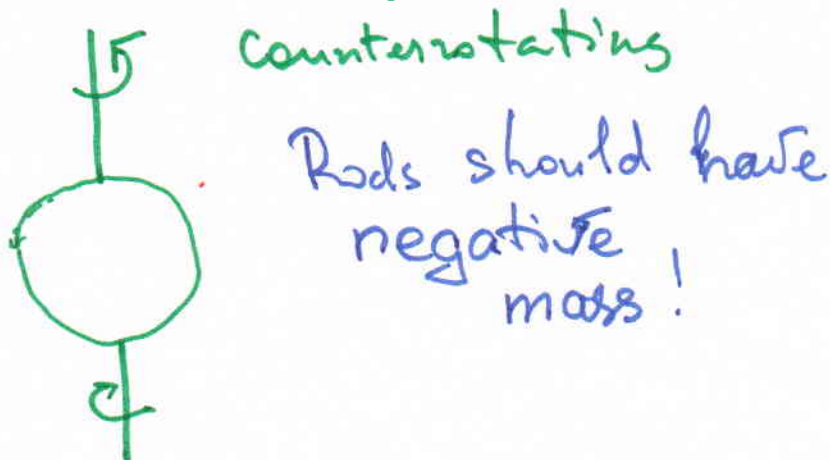 counterrotating
Rods should have
negative
mass!